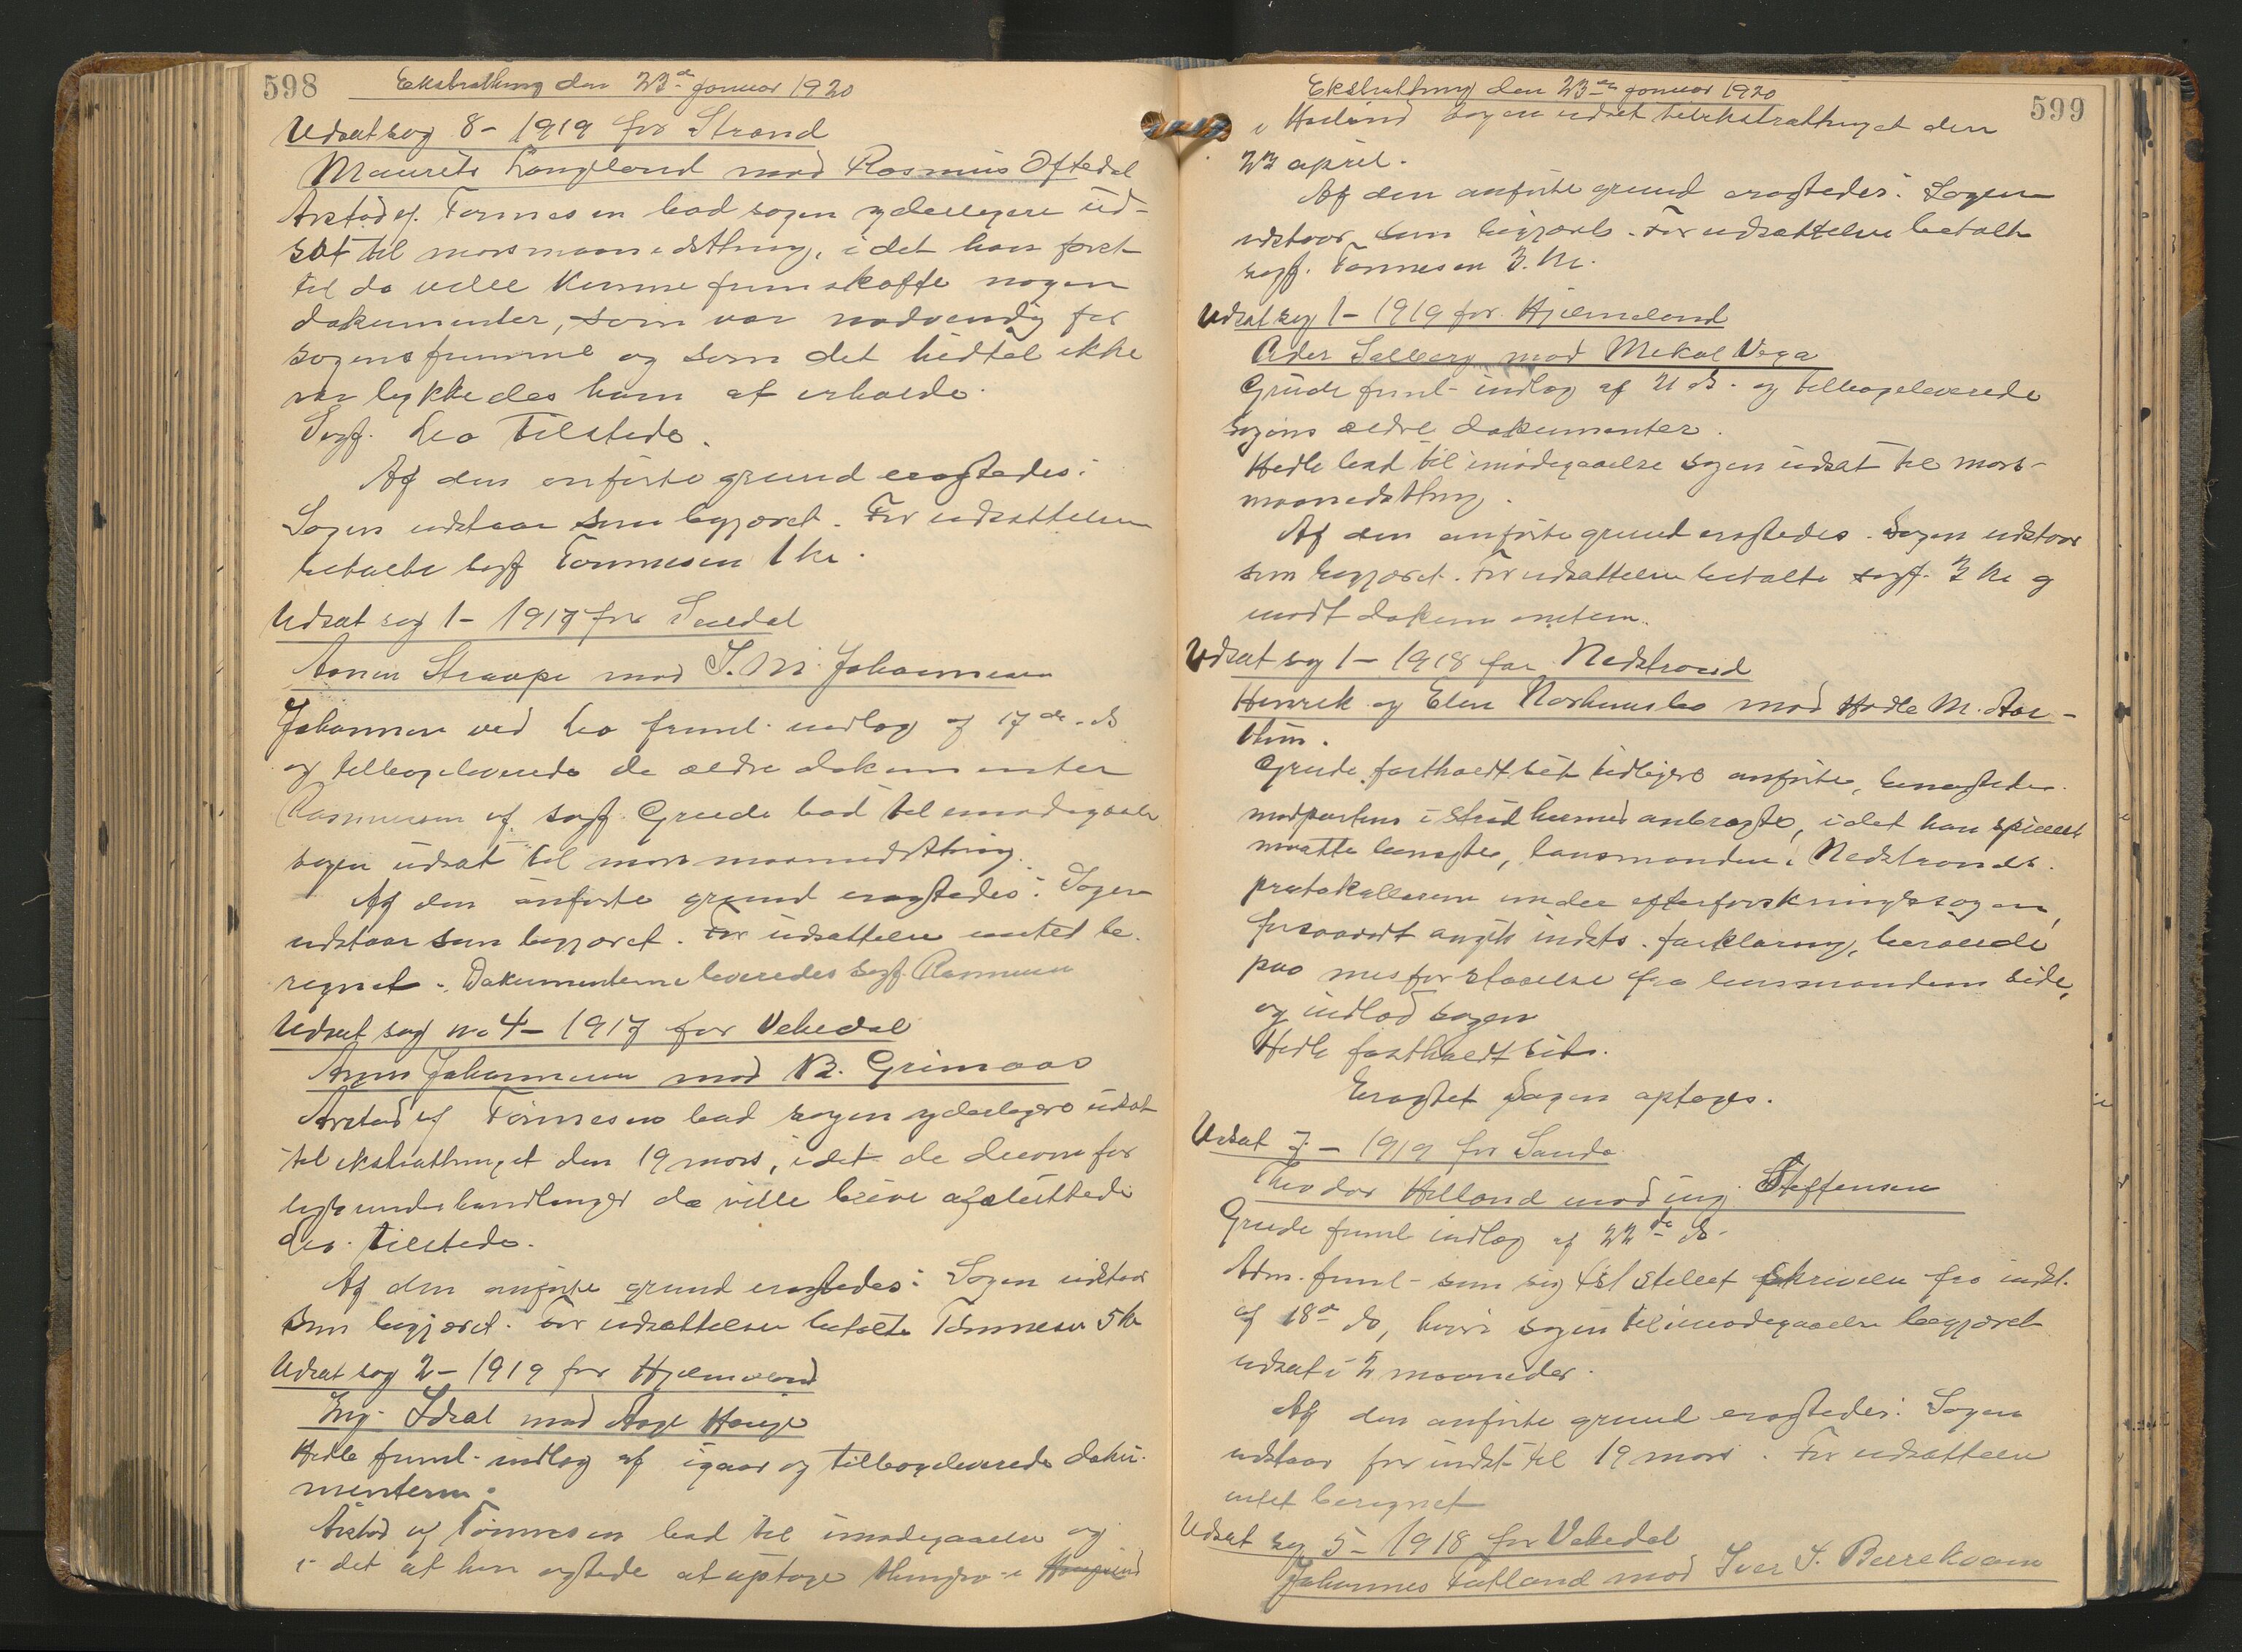 598
Ekstrathing den 23de januar 1920
Udsat sag 8 - 1919 for Strand
Maurits Langeland mod Rasmus Oftedal
Arstad ef. Tønnesen bad sagen yderligere ud-
sat til mars maanedsthing, i det han først
til da vilde kunne fremskaffe nogen
dokumenter, som var nødvendig for
sagens fremme og som det hidtil ikke
var lykkedes ham at erholde.
Sagf. Lea tilstede.
Af den anførte grund eragtedes:
Sagen udstaar som begjæret. For udsættelsen
betalte sagf Tønnesen 1 kr.
Udsat sag 1 - 1917 for Suldal
Straape mod T. M. Johannesen
Johannesen ved Lea freml. indlæg af 17de ds
og tilbageleverede de ældre dokumenter
Rasmussen ef. sagf. Grude bad til imødegaaelse
sagen udsat til mars maanedsthing.
Af den anførte grund eragtedes: Sagen
udstaar som begjæret. For udsættelse intet be-
regnet. Dokumenterne leveredes sagf. Rasmussen
Udsat sag no 4 - 1917 for Vikedal
Johannesen mod B. Grimaas
Arstad ef Tønnesen bad sagen yderligere udsat
til ekstrathinget den 19 mars, i det de
underhandlinger da ville blive afsluttede
Lea tilstede.
Af den anførte grund eragtedes: Sagen udstaar
som begjæret. For udsættelsen betalte Tønnesen 5 kr
Udsat sag 2 - 1919 for Hjelmeland
Ing. Idsal mod Aage Hauge
Hedle freml. indlæg af igaar og tilbageleverede doku-
menterne.
Arstad ef Tønnesen bad til imødegaaelse og
i det at han agtede at optage i
599
Ekstrathing den 23de januar 1920
i sagen udsat til ekstrathinget den
23 april.
Af den anførte grund eragtedes: Sagen
udstaar som begjæret. For udsættelse betalte
sagf. Tønnesen 3 kr.
Udsat sag 1 - 1919 for Hjelmeland
Salberg mod Mikal Vega
Grude freml. indlæg af 21 ds. og tilbageleverede
sagens ældre dokumenter.
Hedle bad til imødegaaelse sagen udsat til mars-
maanedsthing.
Af den anførte grund eragtedes: Sagen udstaar
som begjæret. For udsættelsen betalte sagf. 3 kr og
modt dokumenterne.
Udsat sag 1 - 1918 for Nedstrand
Henrik og Elen mod Hadle M. Aar-
thun.
Grude fastholdt sit tidligere anførte, benegtede
modpartens i strid hermed anbragte, i det han specielt
maatte benegte, lensmanden i Nedstrands
protokollasjon under efterforskningssagen,
forsaavidt angik indsts. forklaring, beroede
paa misforstaaelse fra lensmandens side,
og indlod sagen
Hedle fastholdt sit.
Eragtet Sagen optages.
Udsat 7 - 1919 for Sauda
Theodor Helland mod ing. Steffensen
Grude freml. indlæg af 22de ds.
Adm. freml. - som sig tilstillet skrivelse fra indst.
af 18de ds, hvori sagen til imødegaaelse begjæret
udsat i 2 maaneder.
Af den anførte grund eragtedes: Sagen
udstaar for indst. til 19 mars. For udsættelsen
intet beregnet
Udsat sag 5 - 1918 for Vikedal
Johannes Fatland mod Iver I. Bjerekvam